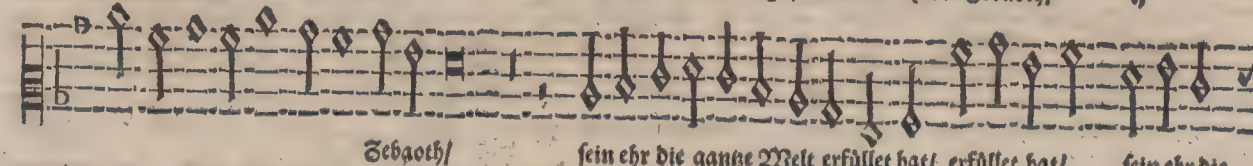 Zebaoth/ sein ehr die gantze Welt erfüllet hat/ erfüllet hat/ sein ehr die